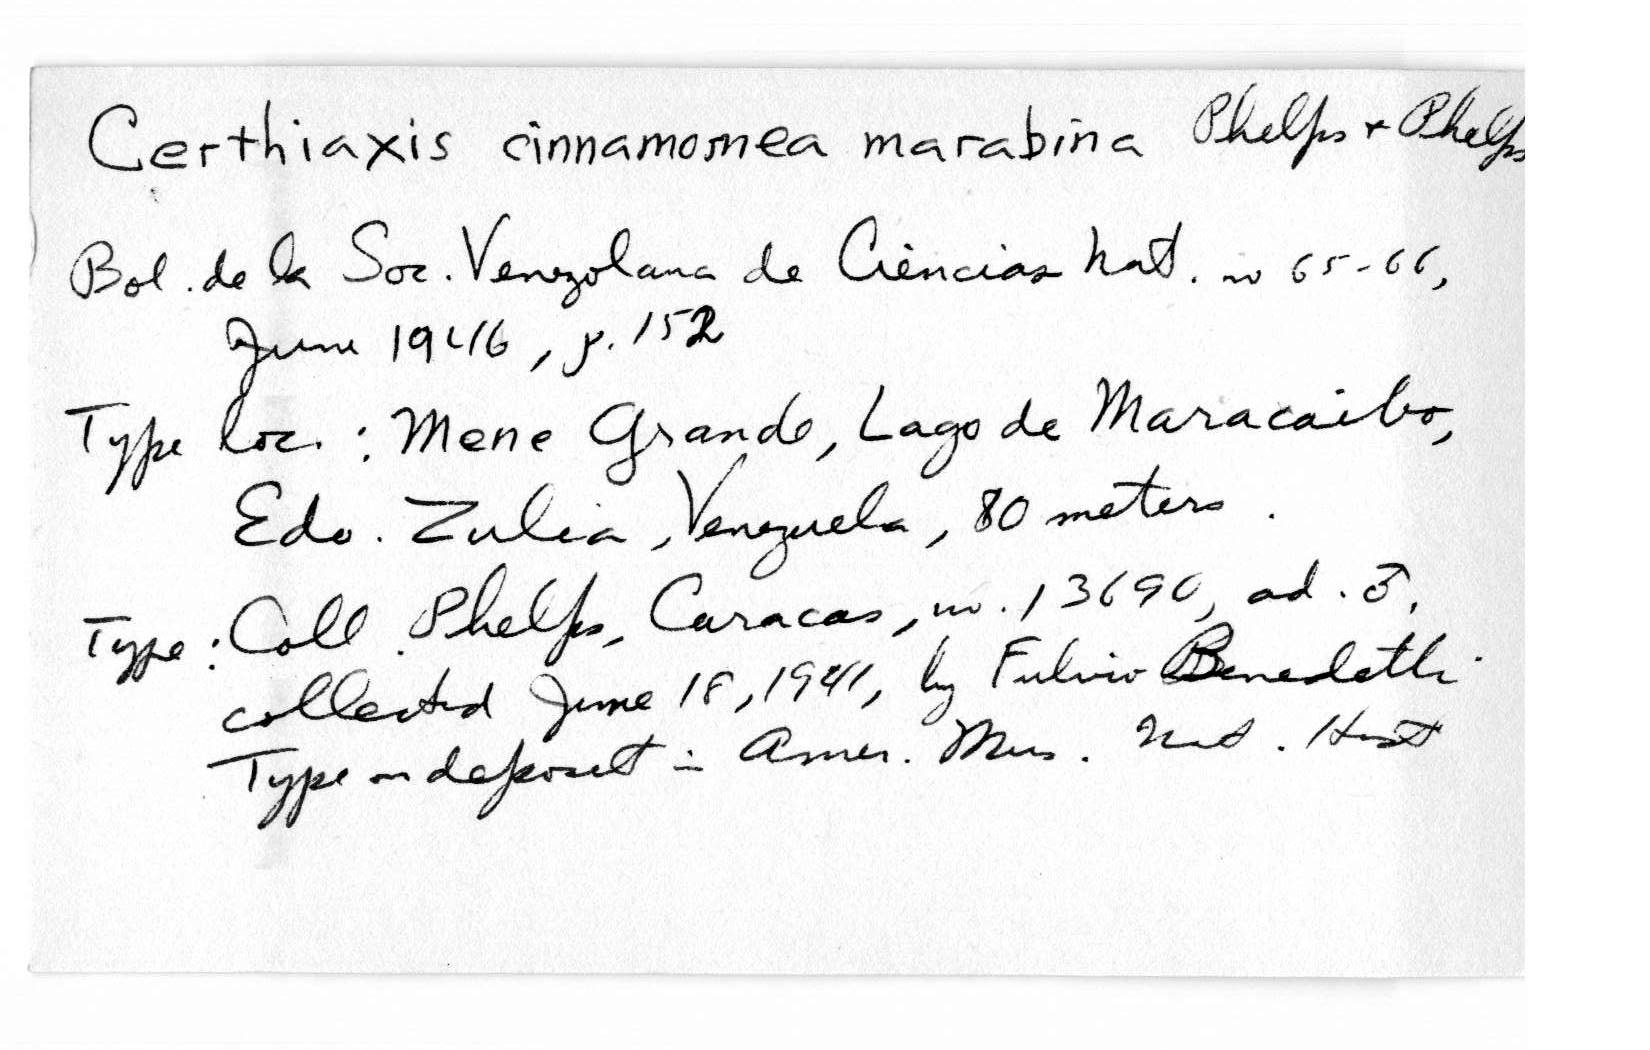 Certhiaxis cinnamomea marabina Phelps + Phelps
Bol. de la Soc. Venezolana de Ciencias Nat. no 65-66,
June 1946, p. 152
Type loc. : Mene Grande, Lago de Maracaibo,
Edo. Zulia, Venezuela, 80 meters.
Type: Coll. Phelps, Caracas, no. 13690, ad. ♂,
collected June 18, 1941, by Fulvio Benedetti.
Type on deposit in Amer. Mus. Nat. Hist